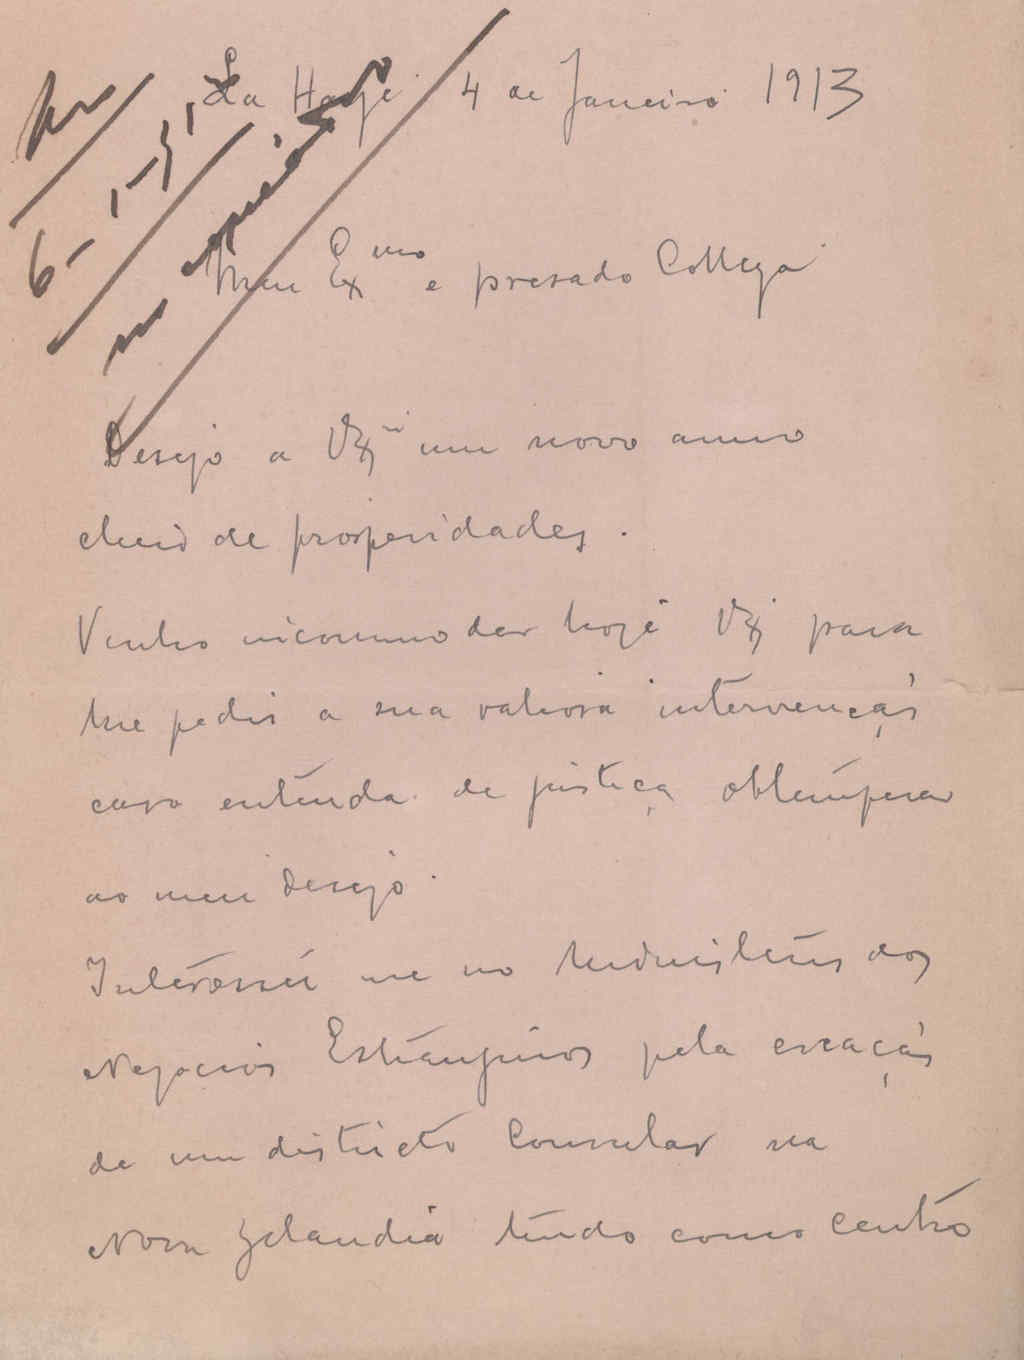 La Haye 4 de Janeiro 1913
Meu Ex.mo e presado Collega
Desejo a VEx um novo anno
cheio de prosperidades.
Venho incommodar hoje VEx para
lhe pedir a sua valiosa intervenção
caso entenda de justiça obtemperar
ao meu desejo.
Interessei me no Ministerio dos
Negocios Estrangeiros pela creação
de um districto Consular na
Nova Zelandia tendo como centro